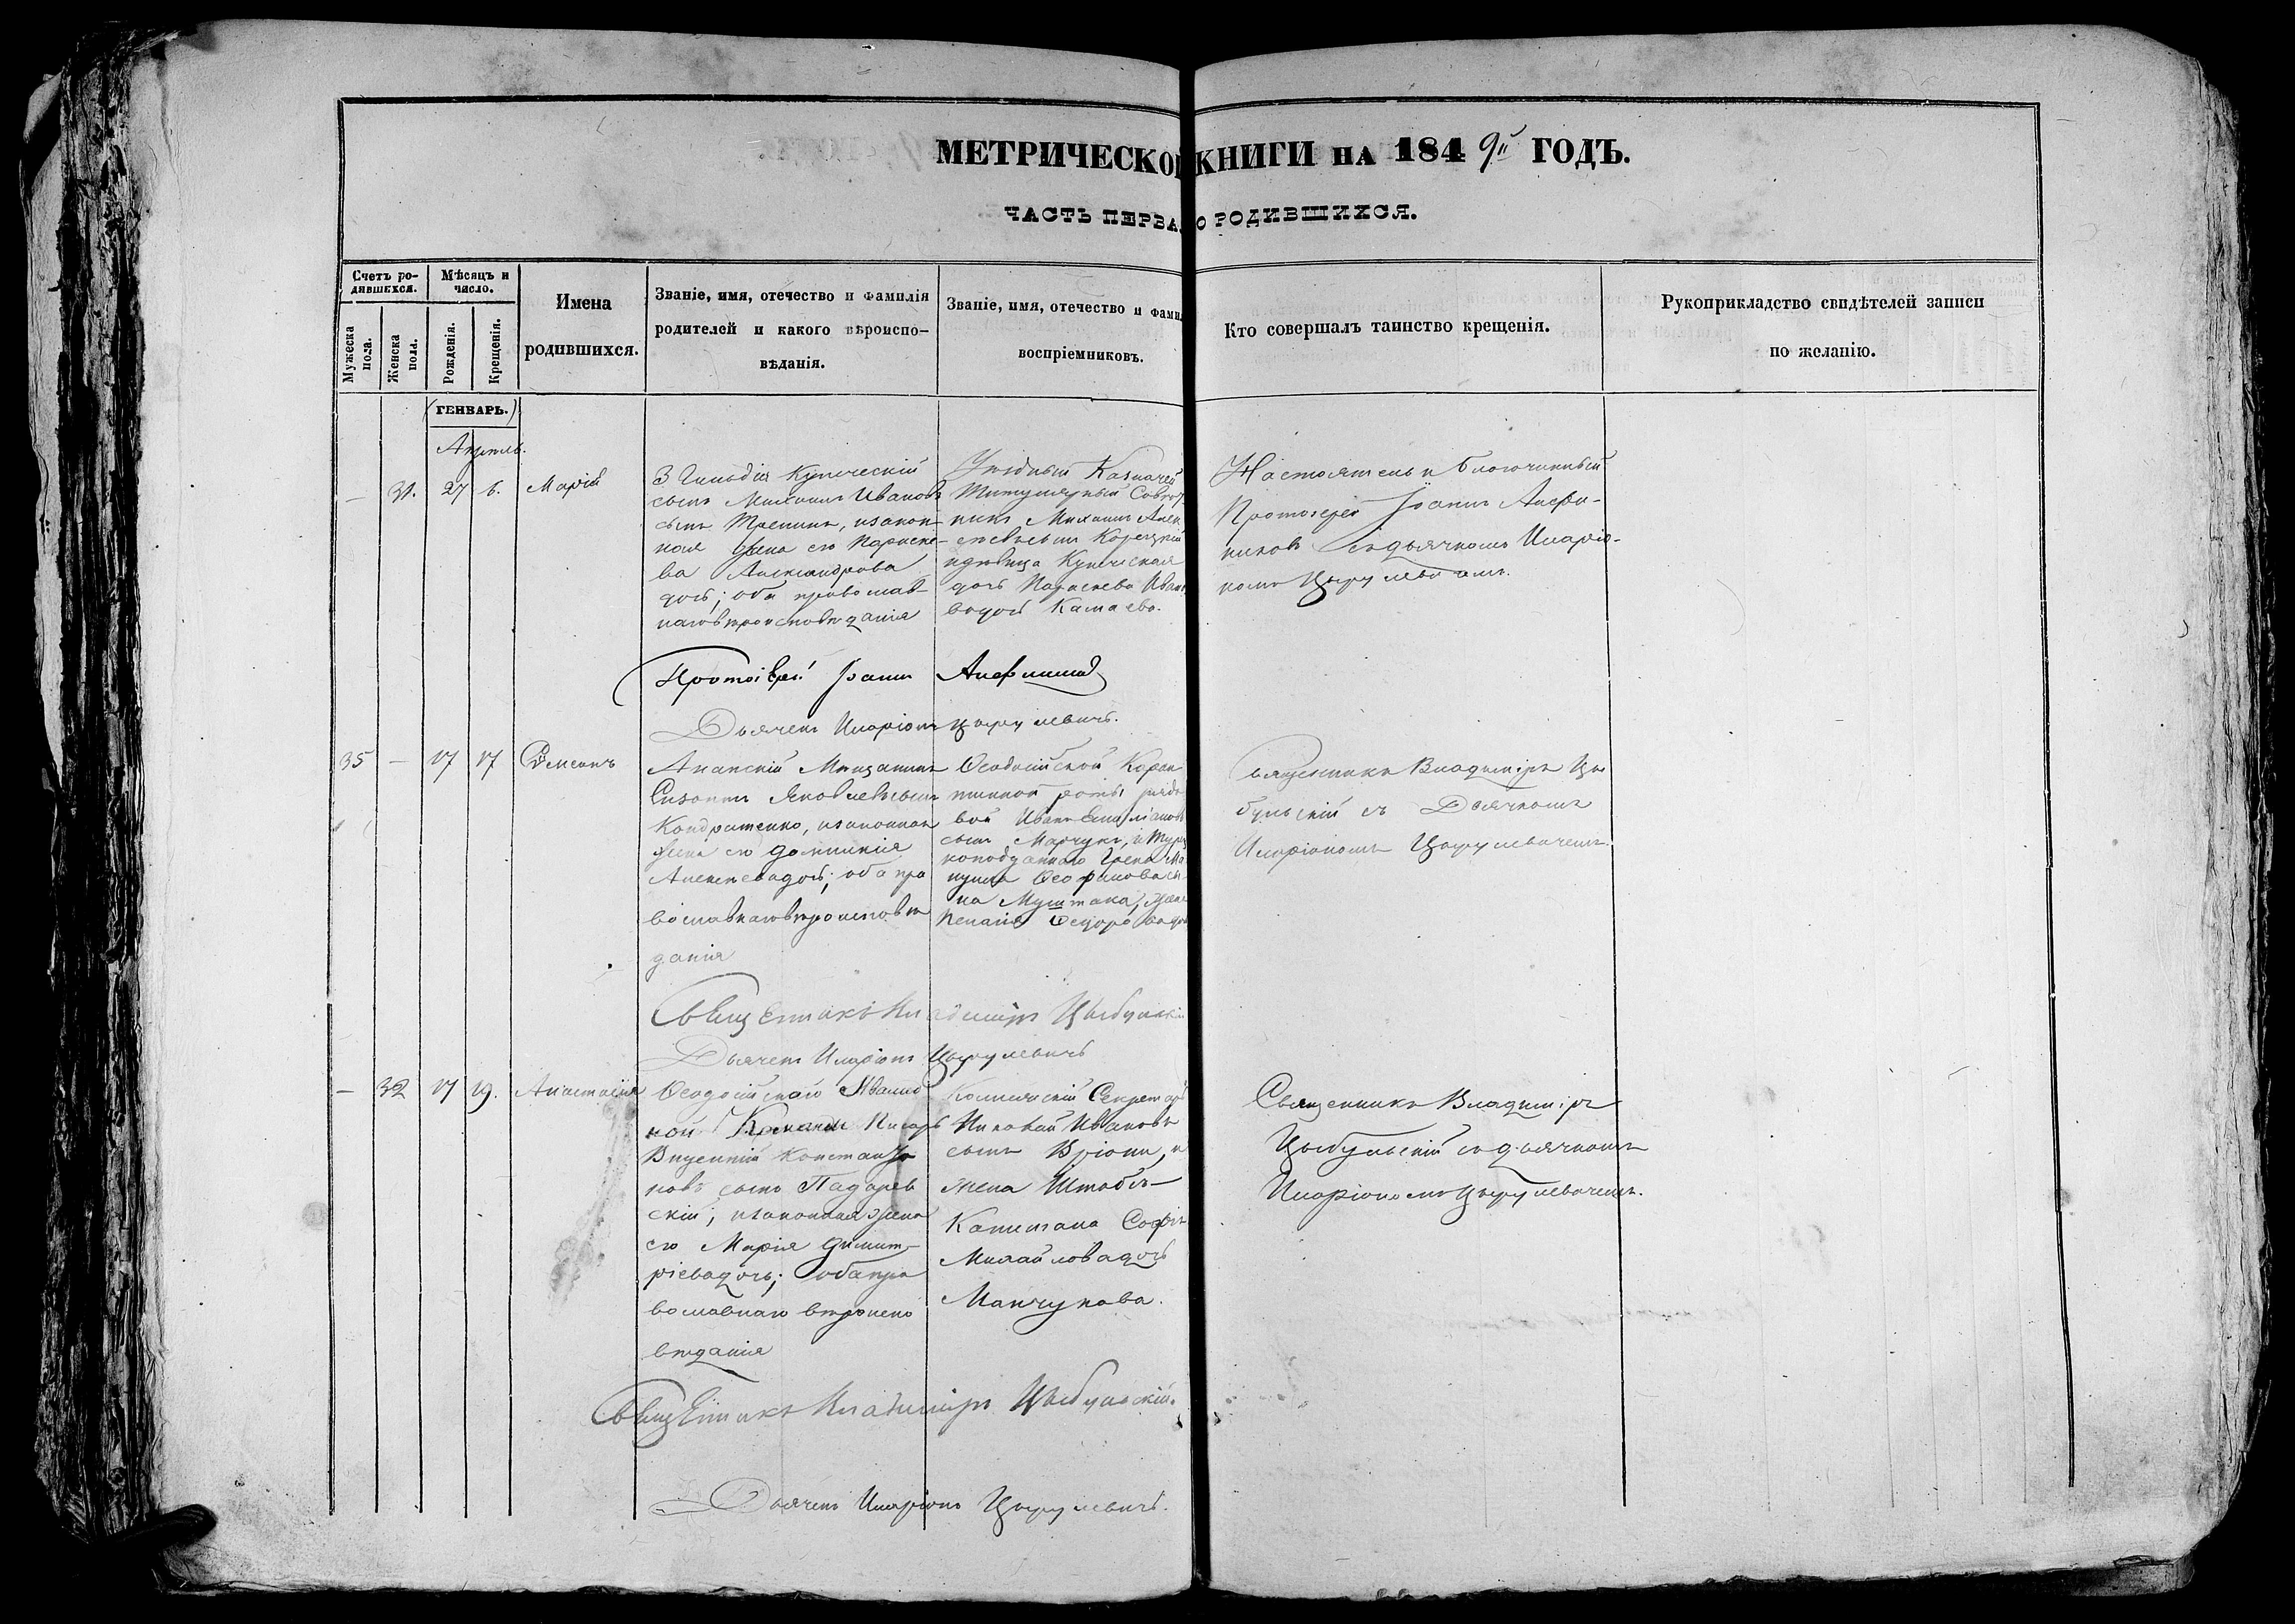 МЕТРИЧЕСКОЙ КНИГИ НА 1849й ГОДЪ.
ЧАСТЬ ПЕРВА О РОДИВШИХСЯ.
Счетъ родившихся.
Мужеска пола.
Женска пола.
Мѣсяцъ и число.
Рожденія.
Крещенія.
Имена родившихся.
Званіе, имя, отечество и фамилія
родителей и какого вѣроиспо-
вѣданія.
Званіе, имя, отечество и фами
воспріемниковъ.
Кто совершалъ таинство крещенія.
Рукоприкладство свидѣтелей записи
по желанію.
(ГЕНВАРЬ.)
Апрель.
— 31. 27 6. Марія
3 Гильдіи Купеческій
сынъ Михаилъ Ивановъ
сынъ изакон-
ная жена его Параске-
ва Александрова
дочь; оба православ-
наго вѣроисповѣданія
Уѣздный Казначей
Титулярный Совѣт
никъ Михаилъ Алек
сѣевъ сынъ Корецкій
идѣвица Купеческая
дочь Параскева Ивано
ва дочь Камаева.
Настоятель и Благочинный
Протоіерей Іоаннъ Анфи-
ногеновъ
съ дьячкомъ Иларіо-
номъ Цырулевичемъ.
Протоіерей Іоаннъ
Дьячекъ Иларіонъ Цырулевичъ.
35 — 17 17 Симеонъ
Анапскій Мѣщанинъ
Сизонтъ Яковлевъ сынъ
Кондратенко, изаконная
жена его Домникія
Алексѣева дочь; оба пра
вославнаго вѣроисповѣ
данія
Ѳеодосійской Каран
тинной роты рядо
вой Иванъ Емиліановъ
сынъ Марчукъ, и Турец
коподданнаго Грека Ма
нуила Ѳеофилова сы
на Муштака, жена
Ѳедорова дочь
Священникъ Владиміръ Цы
бульскій съ Дьячкомъ
Иларіономъ Цырулевичемъ.
Священникъ Владиміръ Цыбульскій
Дьячекъ Иларіонъ Цырулевичъ
— 32 17 19. Анастасія
Ѳеодосійскаго Инвалид
ной Команды Писарь
Викентій Константи
новъ сынъ Падарев
скій; изаконная жена
его Марія Димит-
ріева дочь; оба пра
вославнаго вѣроиспо
вѣданія
Коллежскій Секретарь
Николай Ивановъ
сынъ Вріони, и
жена Штабсъ-
Капитана Софія
Михайлова дочь
Манчукова.
Священникъ Владиміръ
Цыбульскій съ дьячкомъ
Иларіономъ Цырулевичемъ.
Священникъ Владиміръ Цыбульскій.
Дьячекъ Иларіонъ Цырулевичъ.